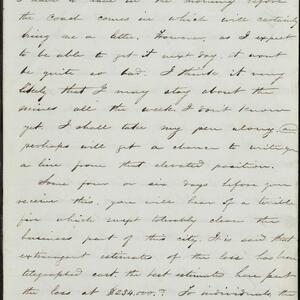 the coach comes in which will certainly
bring me a letter. However, as I expect
to be able to get it next day, it wont
be quite so bad. I think it very
likely that I may stay about the
mines all the week. I don't know
yet. I shall take my pen along and
perhaps will get a chance to write you
a line from that elevated position.
Some four or six days before you
receive this, you will hear of a terrible
fire which swept tolerably clean the
business part of this city. It is said that
extravagant estimates of the loss has been
telegraphed east. The best estimates here put
the loss at $234,000.? To individuals the